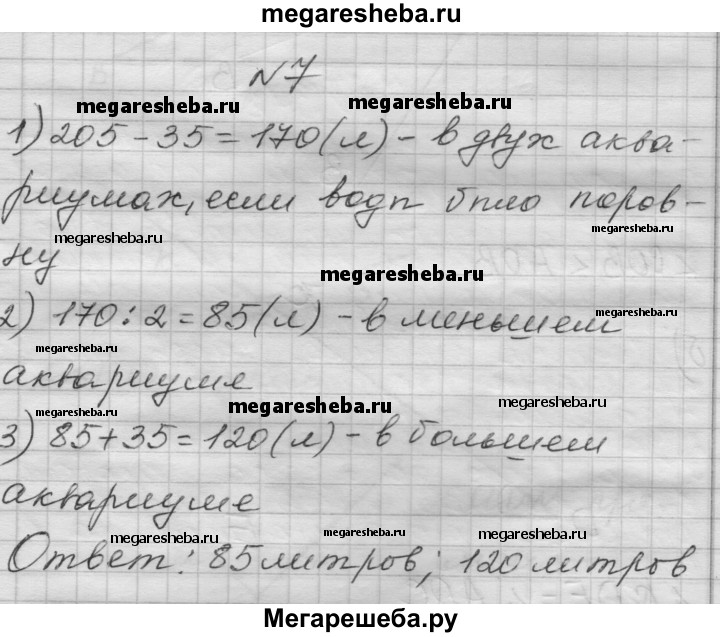 megaresheba.ru
№7
megaresheba.ru megaresheba.ru
1) 205 - 35 = 170 (л) - в двух аква-
риумах, если водп бпло поров-
megaresheba.ru megaresheba.ru
ну
megaresheba.ru
2) 170 : 2 = 85 (л) - в меньшем
megaresheba.ru
аквариуме
megaresheba.ru megaresheba.ru megaresheba.ru
3) 85 + 35 = 120 (л) - в большем
аквариуме
megaresheba.ru megaresheba.ru megaresheba.ru
Ответ: 85 литров; 120 литров
Мегарешеба.ру